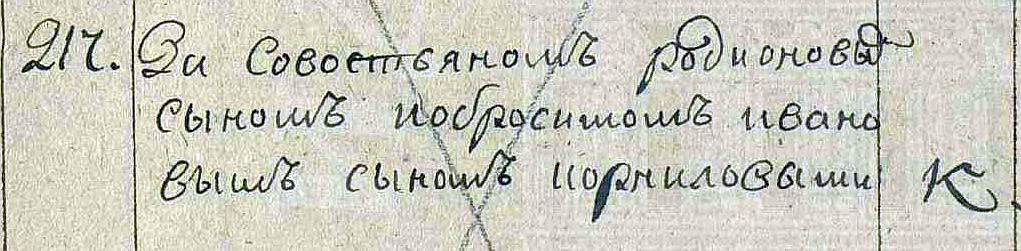 217. За Совостьяномъ родионовы
сыномъ иобросимомъ ивано
вымъ сыномъ корниловыми К.